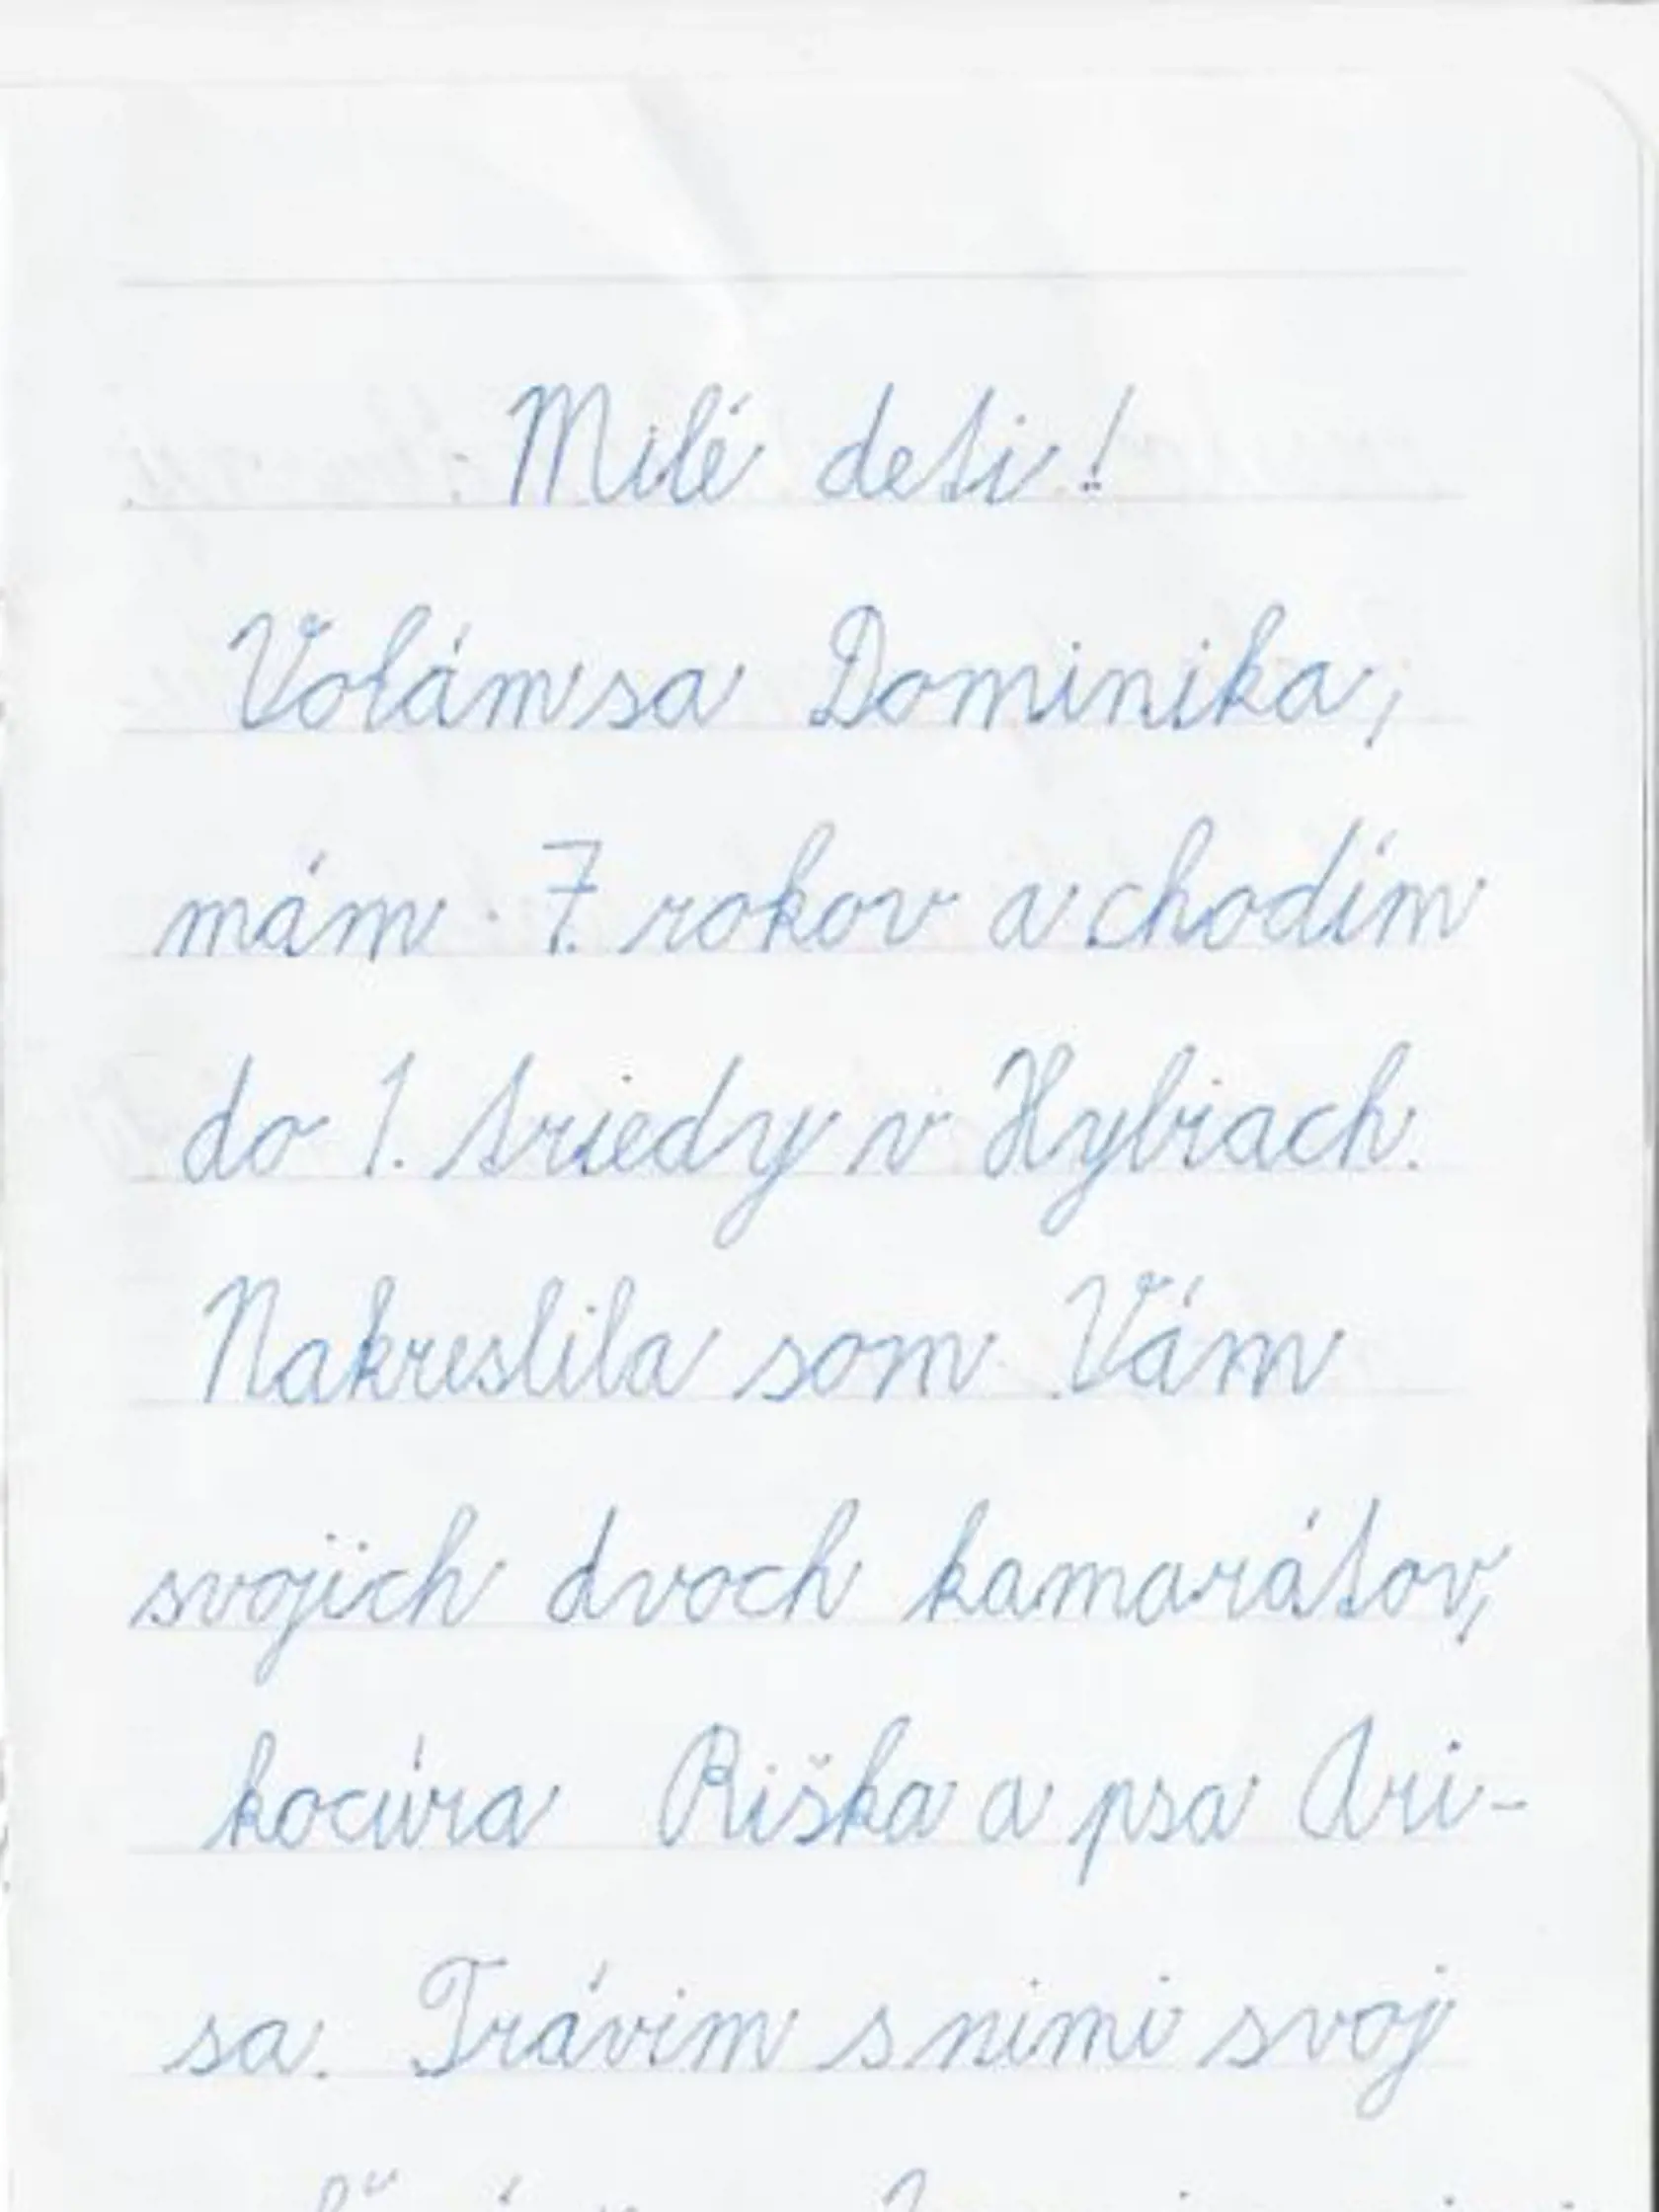 Milé deti!
Volám sa Dominika,
mám 7 rokov a chodím
do 1. triedy v Hybiach.
Nakreslila som Vám
svojich dvoch kamarátov,
kocúra Riška a psa Ari-
sa. Trávim s nimi svoj